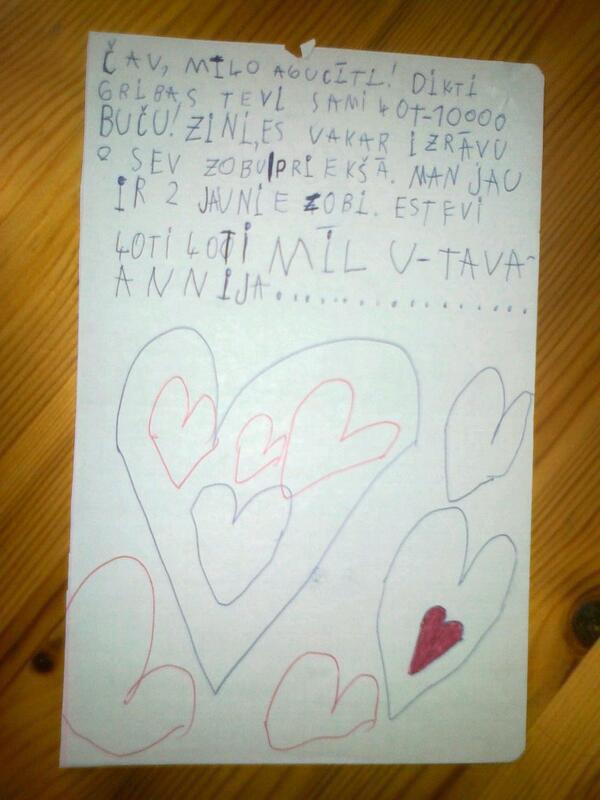 ČAV, MĪ4O AGUCĪTI! DIKTI
GRIBAS TEVI SAMI4OT-10000
BUČU! ZINI, ES VAKAR IZRĀVU
SEV ZOBU PRIEKŠĀ. MAN JAU
IR 2 JAUNIE ZOBI. ES TEVI
4OTI 4OTI MĪLU-TAVA-
ANNIJA....................